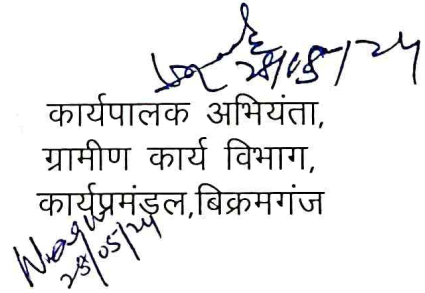 28/05/24
कार्यपालक अभियंता,
ग्रामीण कार्य विभाग,
कार्यप्रमंडल,बिक्रमगंज
28/05/24